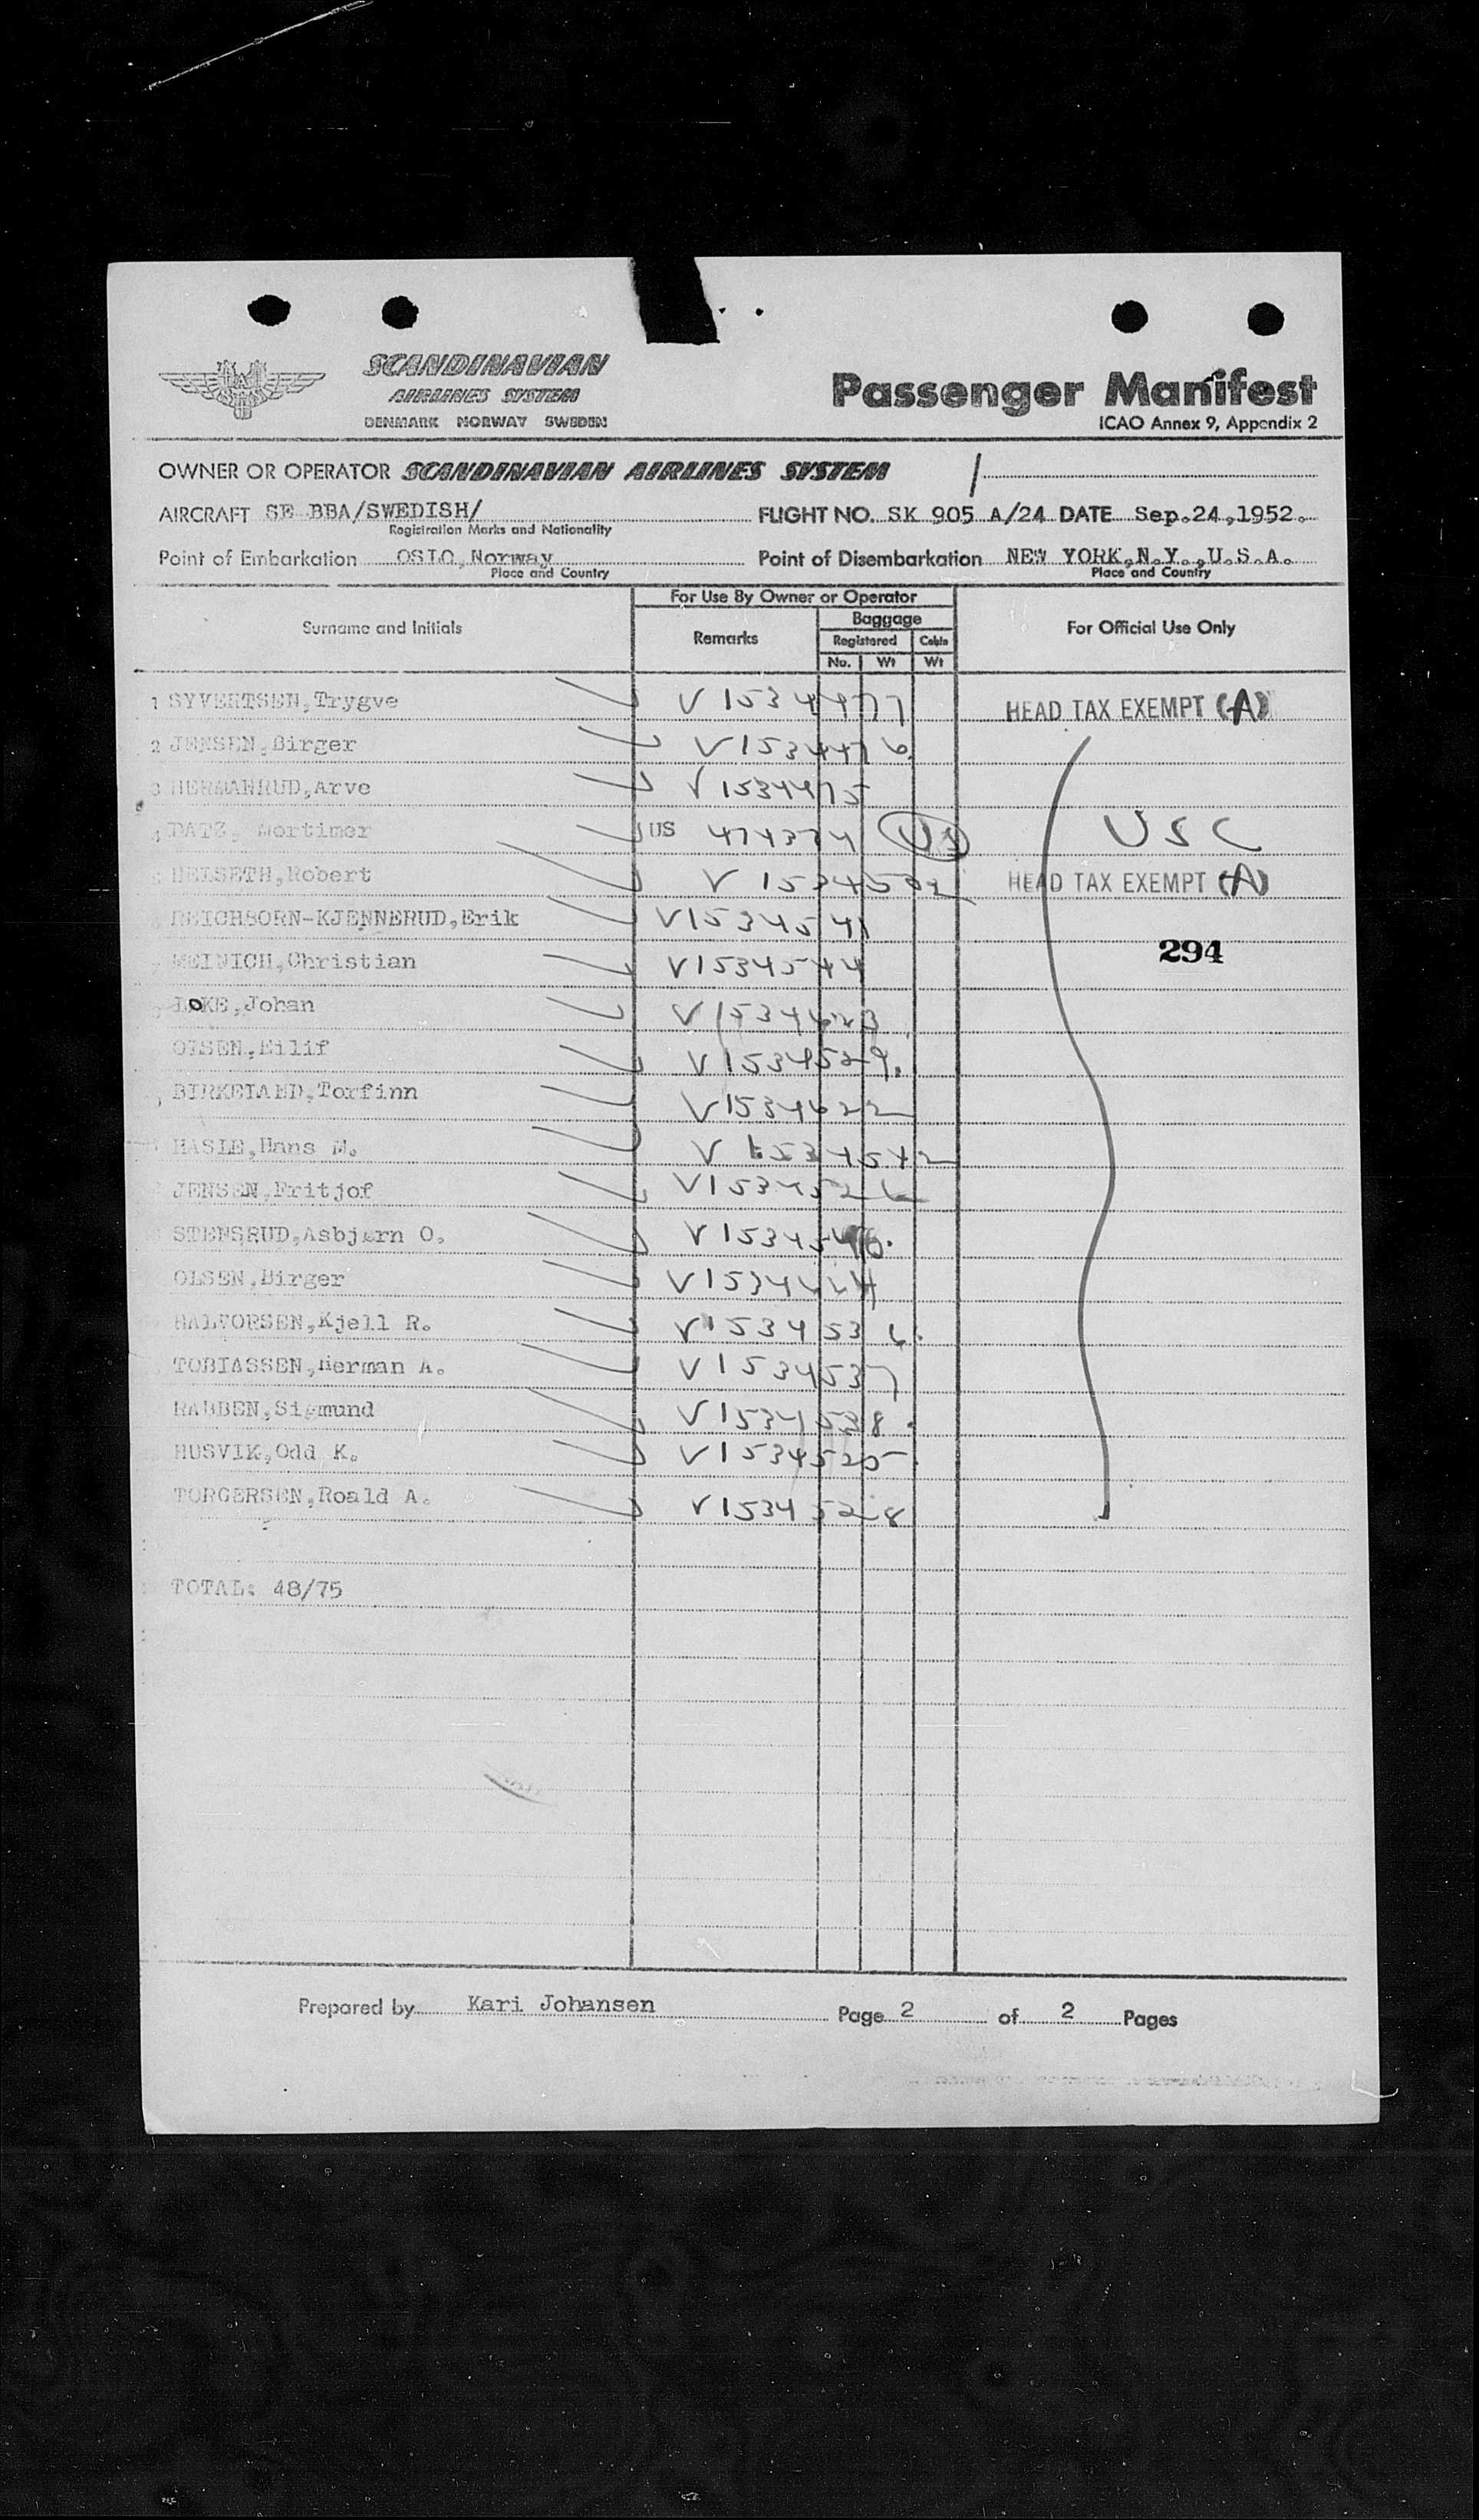 SCANDINAVIAN
AIRLINES SYSTEM
DENMARK NORWAY SWEDEN
Passenger Manifest
ICAO Annex 9, Appendix 2
OWNER OR OPERATOR SCANDINAVIAN AIRLINES SYSTEM
AIRCRAFT SE BBA/SWEDISH/ FLIGHT NO. SK 905 A/24 DATE Sep.24,1952.
Registration Marks and Nationality
Point of Embarkation OSLO,Norway Point of Disembarkation NEW YORK,N.Y.,U.S.A.
Place and Country Place and Country
For Use By Owner or Operator
Surname and Initials Remarks Baggage For Official Use Only
Registered Cabin
No. Wt Wt
1 SYVERTSEN,Trygve V 1534477 HEAD TAX EXEMPT (A)
2 JENSEN,Birger V 1534476
3 HERMANRUD,Arve V 1534475
4 DATZ, Mortimer US 474374 US USC
HELSETH,Robert V HEAD TAX EXEMPT (A)
REICHBORN-KJENNERUD,Erik V1534541
294
MEINICH,Christian V1534544
LOKE,Johan V 1534623
OLSEN,Eilif V 1534529.
BIRKELAND,Torfinn V1534622
HASLE,Hans M. V 1534542
JENSEN,Fritjof V1534526
STENSRUD,Asbjørn O. V
OLSEN,Birger V
HALVORSEN,Kjell R. V 1534536.
TOBIASSEN,Herman A. V 1534537
RABBEN,Sigmund V 1534538.
HUSVIK,Odd K. V 1534525.
TORGERSEN,Roald A. V1534528
TOTAL: 48/75
Prepared by Kari Johansen Page 2 of 2 Pages